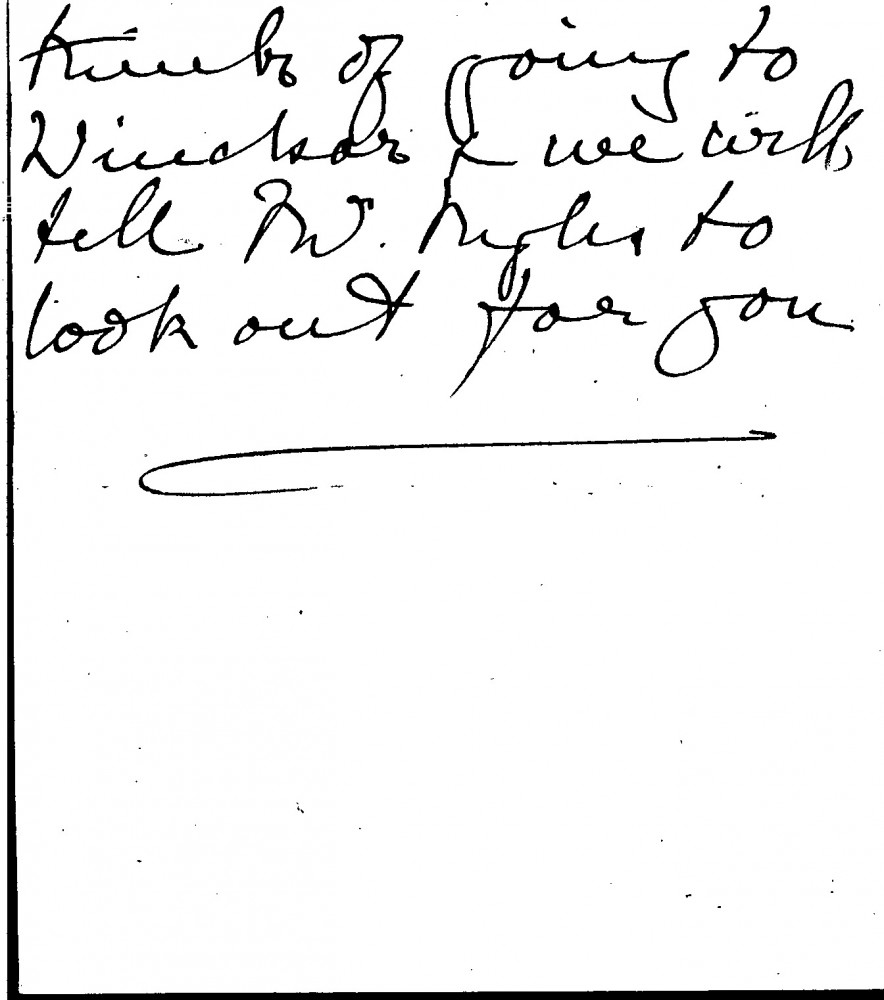 think of going to
Windsor & we will
tell Mr. to
look out for you